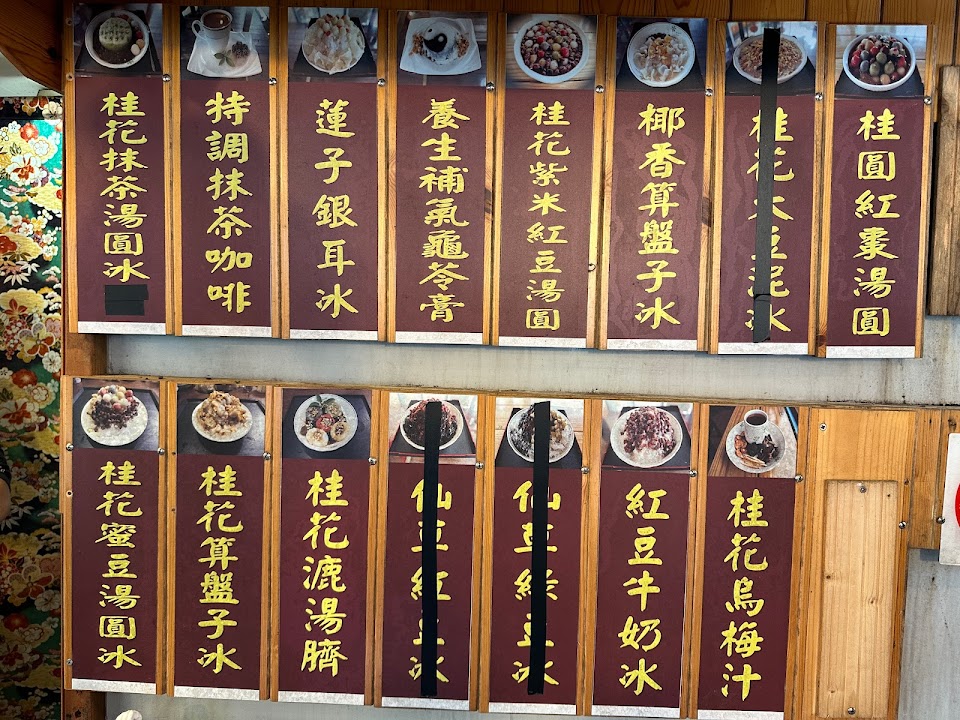 桂花抹茶湯圓冰
特調抹茶咖啡
蓮子銀耳冰
養生補氣龜苓膏
桂花紫米紅豆湯圓
椰香算盤子冰
桂花大豆泥冰
桂圓紅棗湯圓
桂花蜜豆湯圓冰
桂花算盤子冰
桂花漉湯臍
仙草紅豆冰
仙草綠豆冰
紅豆牛奶冰
桂花烏梅汁